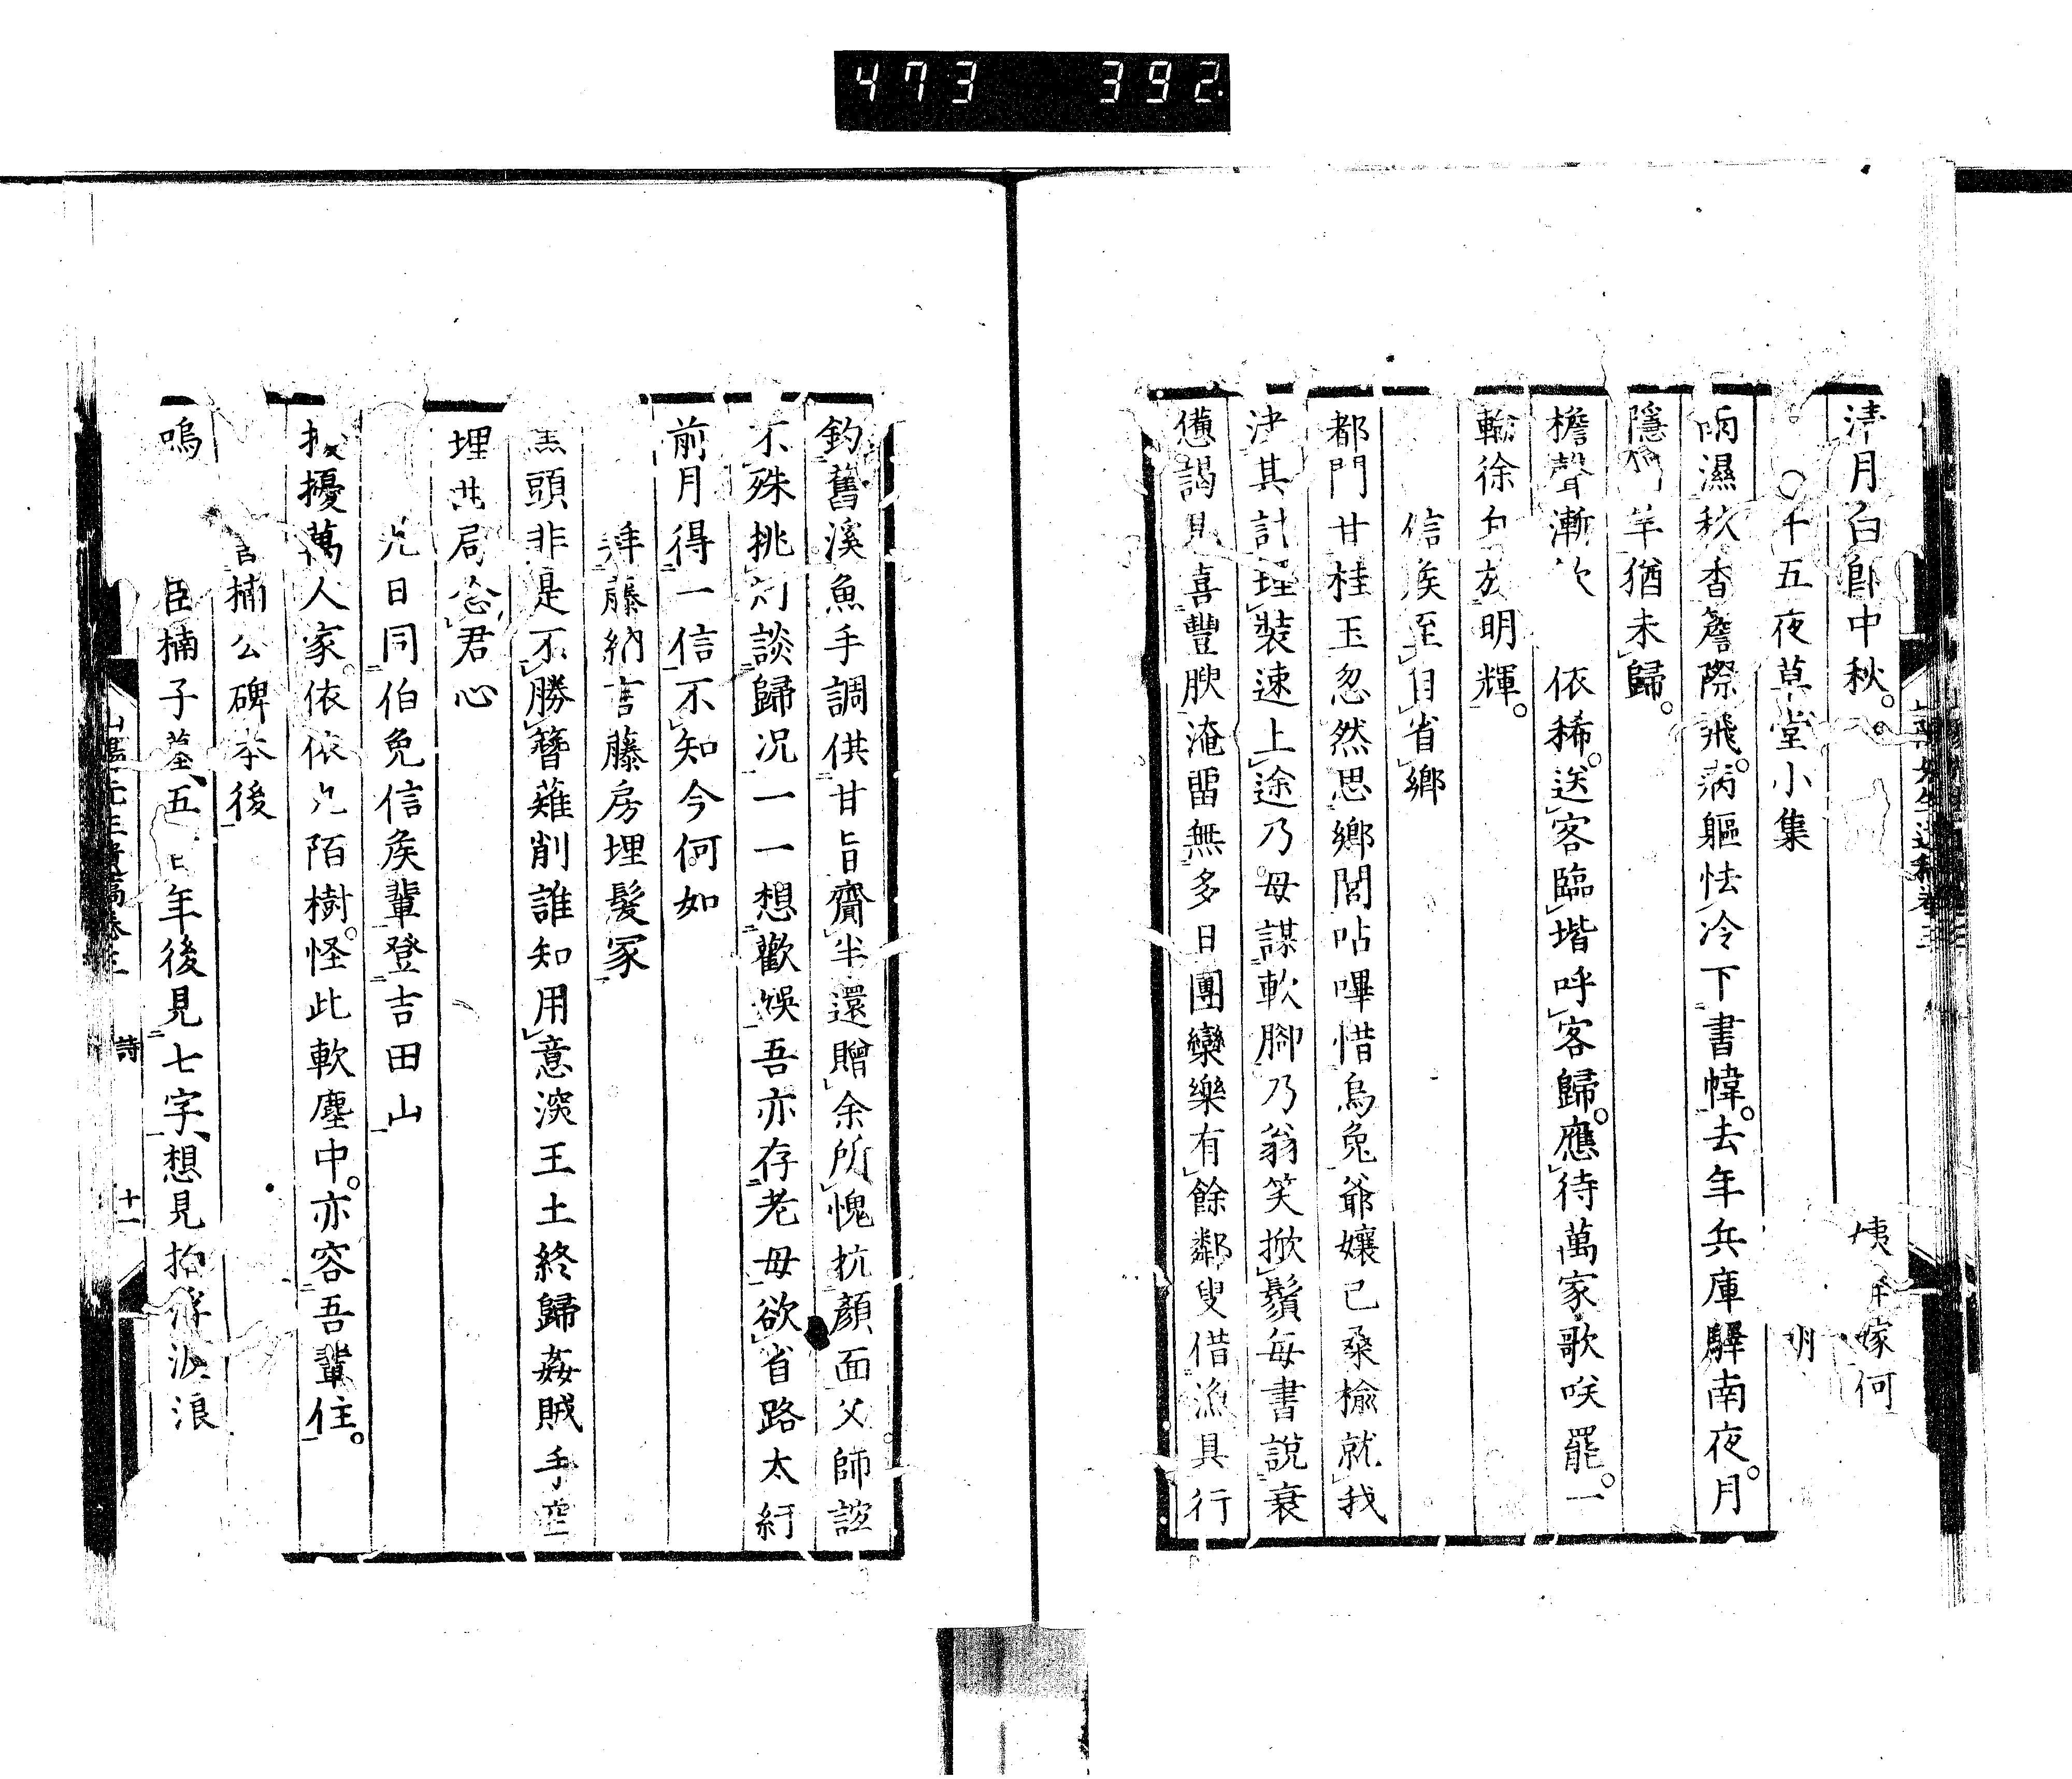 473 392
清月白即中秋。 嫁何
十五夜草堂小集
雨濕秋香簷際飛。病軀怯冷下書幃。去年兵庫驛南夜。月
隱 猶未歸。
檐聲漸 依稀。送客臨堦呼客歸。應待萬家歌咲罷。一
輪徐 明輝。
信侯至自省鄉
都門甘桂玉忽然思鄉閭呫嗶惜烏兔爺孃已桑榆就我
津其計理裝速上途乃母謀軟腳乃翁笑掀鬚每書說衰
憊謁見喜豐腴淹留無多日團欒樂有餘鄰叟借漁具行
釣舊溪魚手調供甘旨齎半還贈余所愧抗顏面父師誼
不殊挑燈談歸況一一想歡娛吾亦存老母欲省路太紆
前月得一信不知今何如
拜藤納言藤房埋髮冢
黑頭非是不勝簪薙削誰知用意深王土終歸姦賊手
埋 君心
九日同伯免信侯輩登吉田山
擾萬人家。依依九陌樹。怪此軟塵中。亦容吾輩住。
楠公碑本後
嗚 臣楠子墓、五 年後見七字、想見 浪
詩
十一